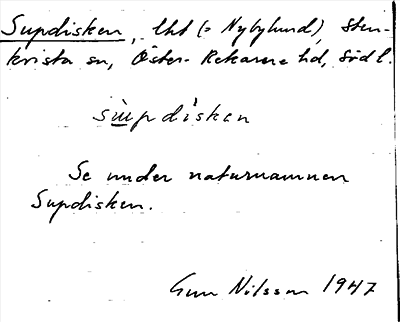 Supdisken, lht (= Nybylund), Sten-
krista sn, Öster-Rekarne hd, Södl.
sùpdìsken
Se under naturnamnen
Supdisken.
Gun Nilsson 1947